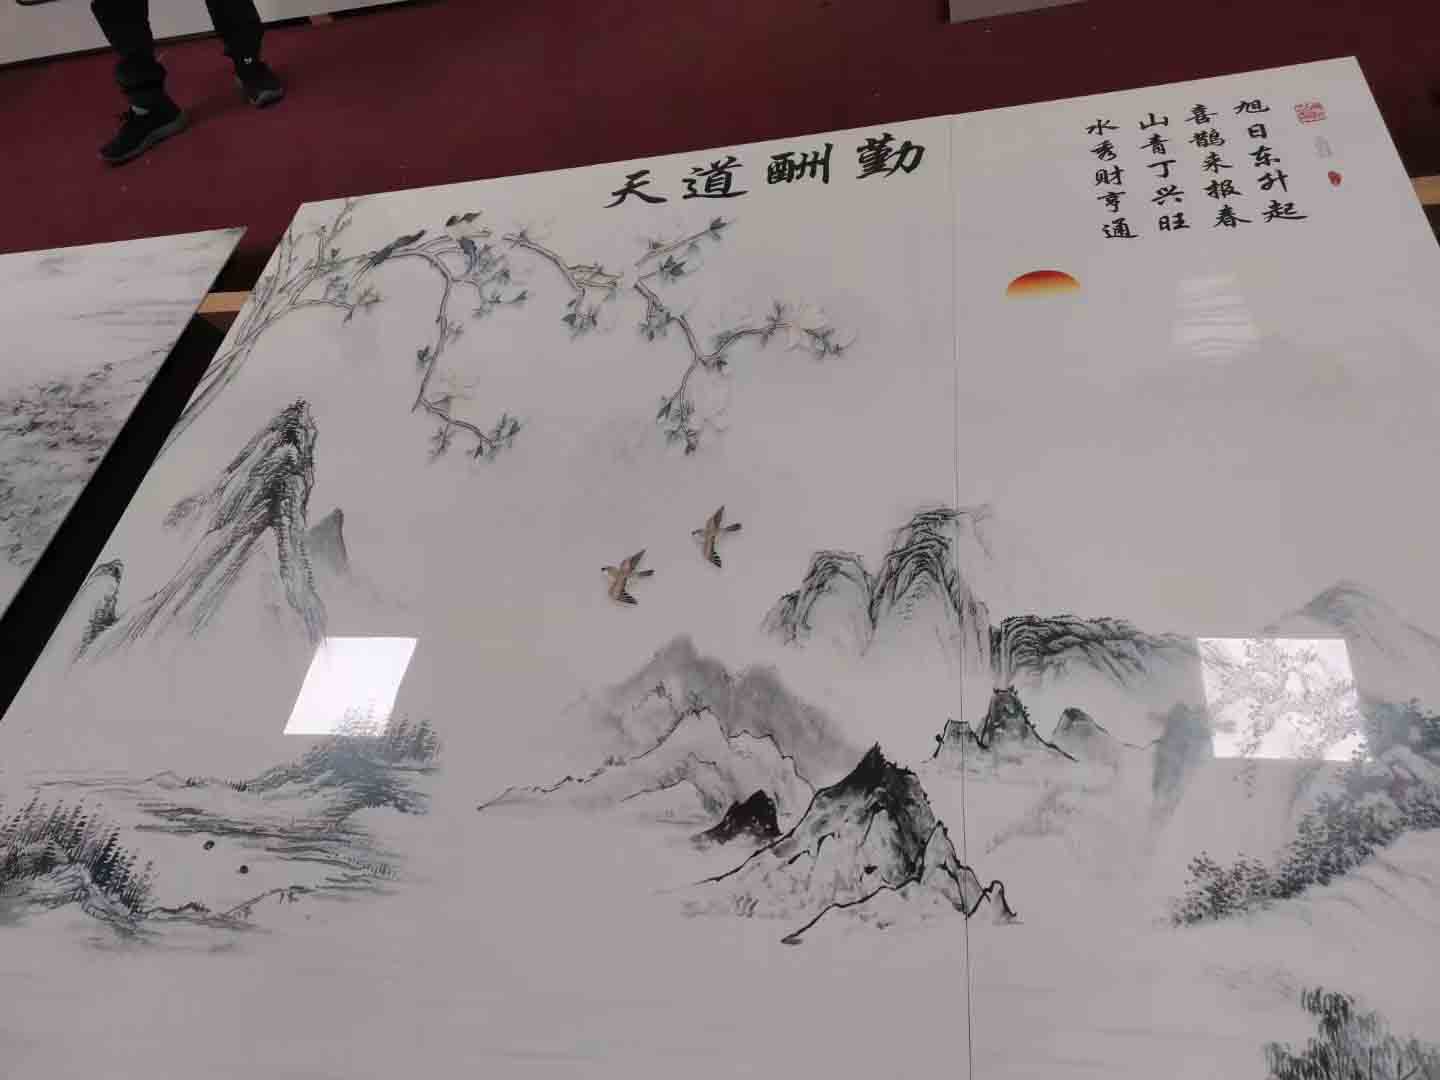 天道酬勤
旭日东升起
喜鹊来报春
山青丁兴旺
水秀财亨通